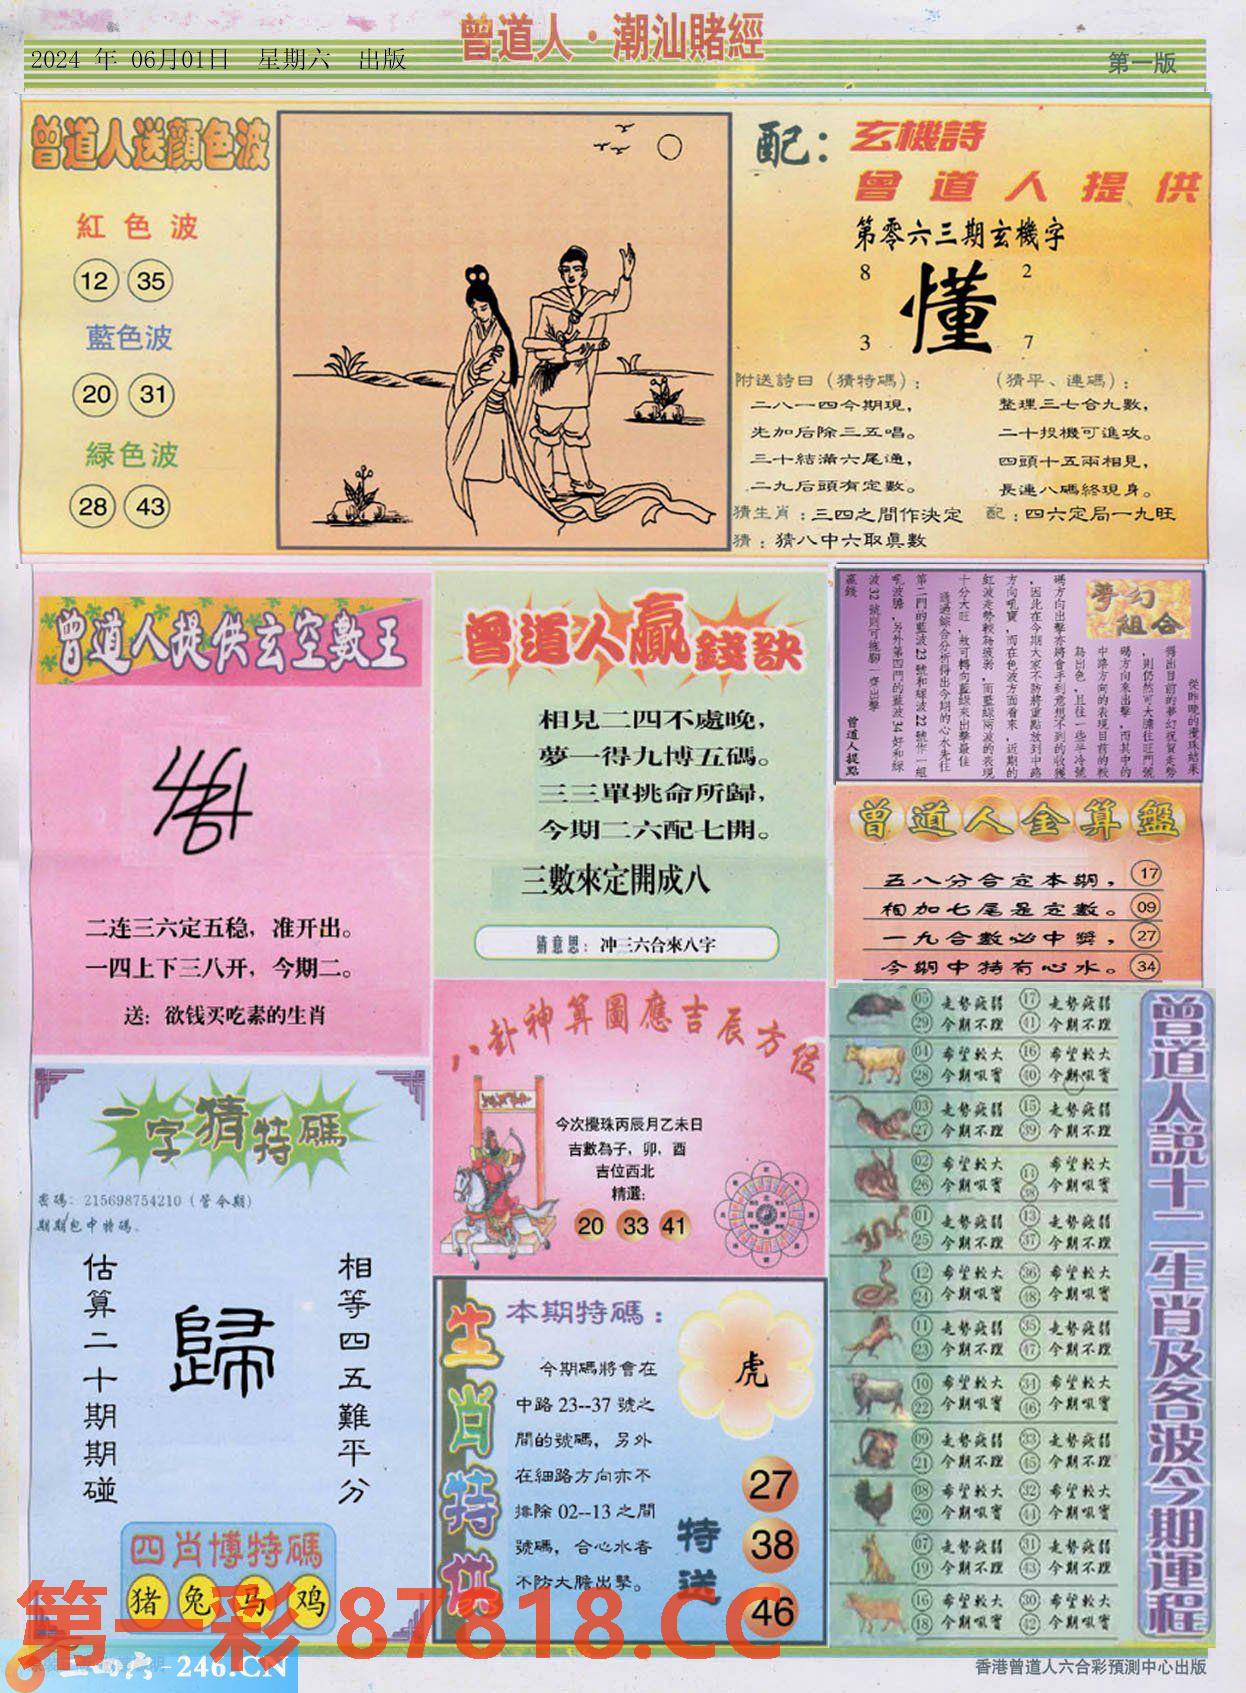 曾道人·潮汕賭經
2024 年 06月01日 星期六 出版
第一版
曾道人送顔色波
紅色波
12 35
藍色波
20 31
緑色波
28 43
配：玄機詩
曾道人提供
第零六三期玄機字
8 2
懂
3 7
附送詩曰（猜特碼）：
二八一四今期現，
先加后除三五唱。
三十結滿六尾通，
二九后頭有定數。
（猜平、連碼）：
整理三七合九數，
二十投機可進攻。
四頭十五兩相見，
長連八碼終現身。
猜生肖：三四之間作決定
配：四六定局一九旺
猜：猜八中六取眞數
曾道人提供玄空數王
二连三六定五稳，准开出。
一四上下三八开，今期二。
送：欲钱买吃素的生肖
曾道人贏錢訣
相見二四不處晚，
夢一得九博五碼。
三三單挑命所歸，
今期二六配七開。
三數來定開成八
猜意思：冲三六合來八字
夢幻組合
從昨晚的攪珠結果
得出目前的夢幻祝賀走勢
，則仍然可大膽往旺門號
碼方向來出擊，而其中的
中路方向的表現目前的較
為出色，且往一些半冷號
碼方向出擊亦將會手到意想不到的收獲
，因此在今期大家不防將重點放到中路
方向吼寶，而在色波方面看來，近期的
紅波走勢較為疲弱，而藍綠兩波的表現
十分大旺，故可轉向藍綠來出擊最佳
通過綜合分析得出今期的心水先往
第二門的藍波23號和綠波22號作一組
吼波膽，另外第四門的藍波34好和綠
波32號則可拖腳一齊出擊
贏錢
曾道人提點
曾道人金算盤
五八分合定本期， 17
相加七尾是定數。 09
一九合數必中獎， 27
今期中特有心水。 34
八卦神算圖應吉辰方位
今次攪珠丙辰月乙未日
吉數為子，卯，酉
吉位西北
精選：
20 33 41
一字猜特碼
密碼：215698754210（管今期）
期期包中特碼．
估算二十期期碰
歸
相等四五難平分
四肖博特碼
猪 兔 马 鸡
生肖特供
本期特碼：
今期碼將會在
中路23--37號之
間的號碼，另外
在細路方向亦不
排除02--13之間
號碼，合心水者
不防大膽出擊。
虎
特送
27
38
46
曾道人説十二生肖及各波今期運程
05 走勢疲弱 17 走勢疲弱
29 今期不理 41 今期不理
04 希望較大 16 希望較大
28 今期吼實 40 今期吼實
03 走勢疲弱 15 走勢疲弱
27 今期不理 39 今期不理
02 希望較大 14 希望較大
26 今期吼實 38 今期吼實
01 走勢疲弱 13 走勢疲弱
25 今期不理 37 今期不理
12 希望較大 36 希望較大
24 今期吼實 48 今期吼實
11 走勢疲弱 35 走勢疲弱
23 今期不理 47 今期不理
10 希望較大 34 希望較大
22 今期吼實 46 今期吼實
09 走勢疲弱 33 走勢疲弱
21 今期不理 45 今期不理
08 希望較大 32 希望較大
20 今期吼實 44 今期吼實
07 走勢疲弱 31 走勢疲弱
19 今期不理 43 今期不理
16 希望較大 30 希望較大
18 今期吼實 42 今期吼實
第一彩 87818.CC
二四六-246.CN
香港曾道人六合彩預測中心出版